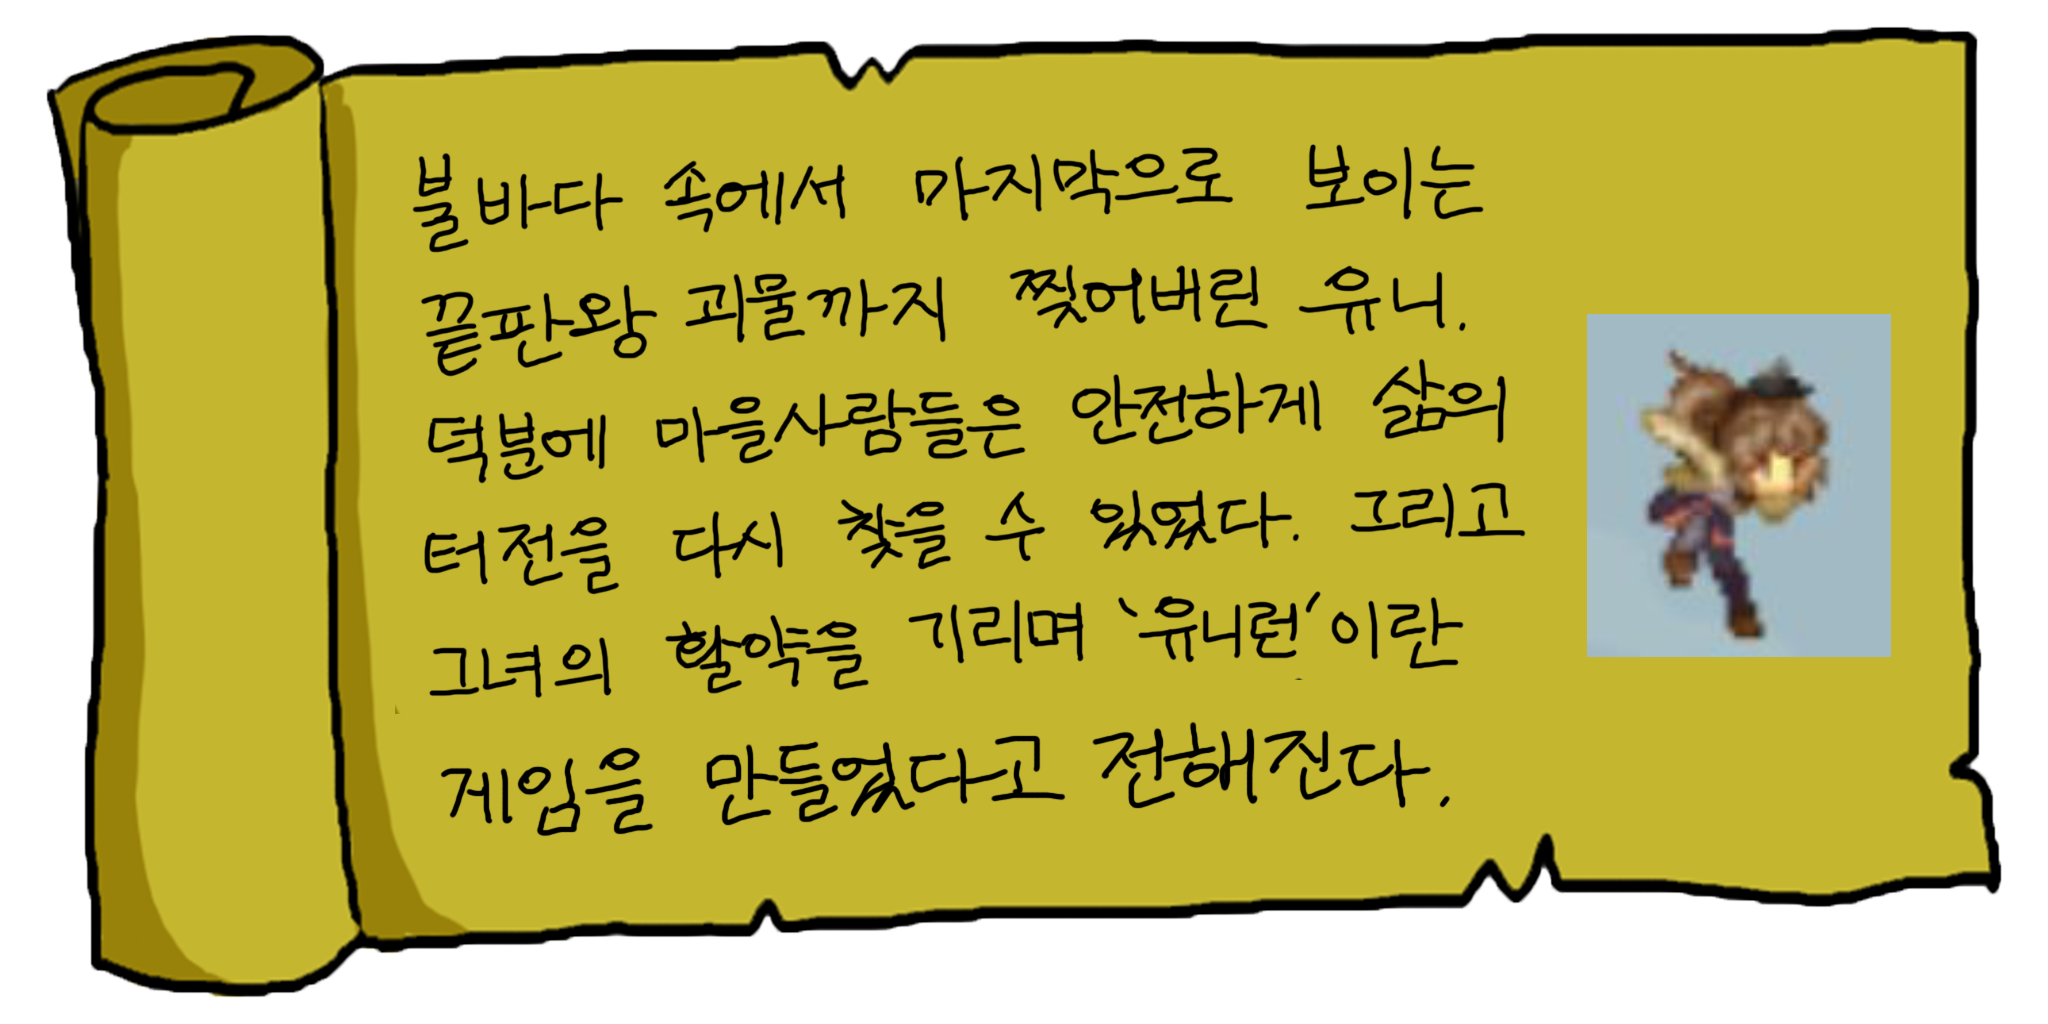 불바다 속에서 마지막으로 보이는
끝판왕 괴물까지 찢어버린 유니.
덕분에 마을사람들은 안전하게 삶의
터전을 다시 찾을 수 있었다. 그리고
그녀의 활약을 기리며 '유니런'이란
게임을 만들었다고 전해진다.